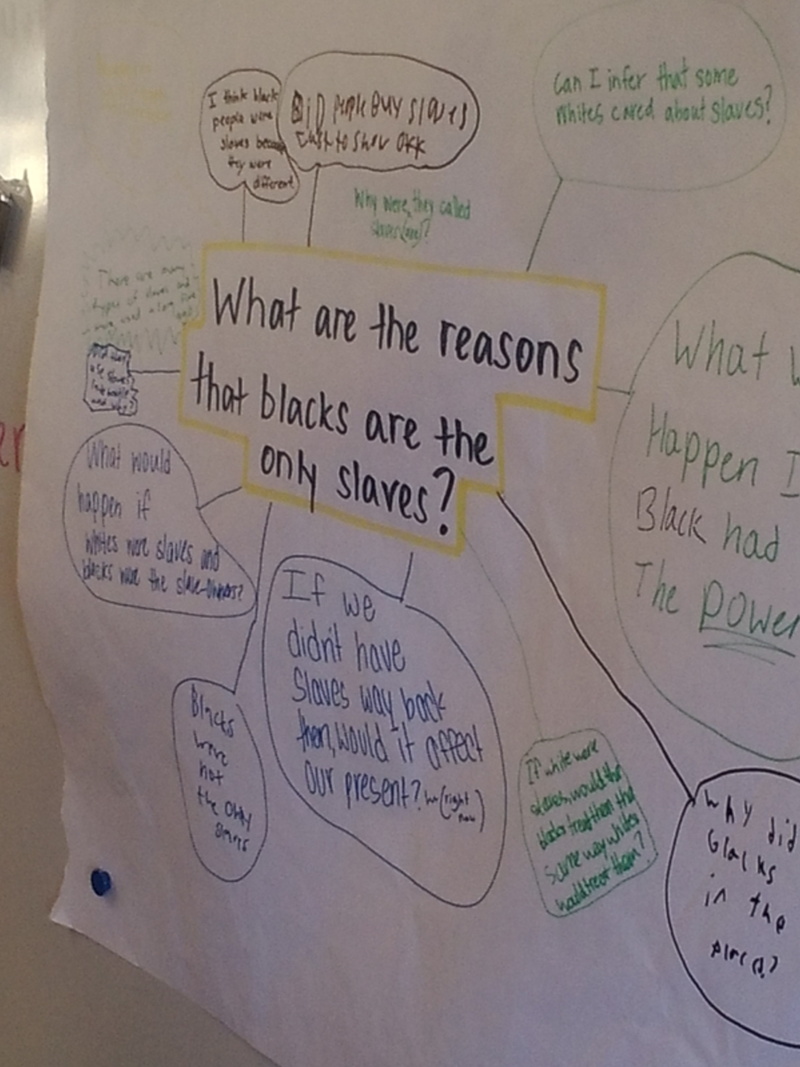 I think black
people were
slaves because
they were
different
DiD People Buy slaves
Just to show OKK
Can I infer that some
whites cared about slaves?
Why were they called
slaves
There are many
types of slaves and
What are the reasons
that blacks are the
only slaves?
What would
happen if
whites were slaves and
blacks were the slave-owners?
What w
Happen I
Black had
The power
If we
didn't have
slaves way back
then, would it affect
our present? (right
now)
Blacks
were
not
the only
slaves
If white were
slaves, would the
blacks treat them that
same way whites
would treat them?
Why did
Blacks
in the
place?